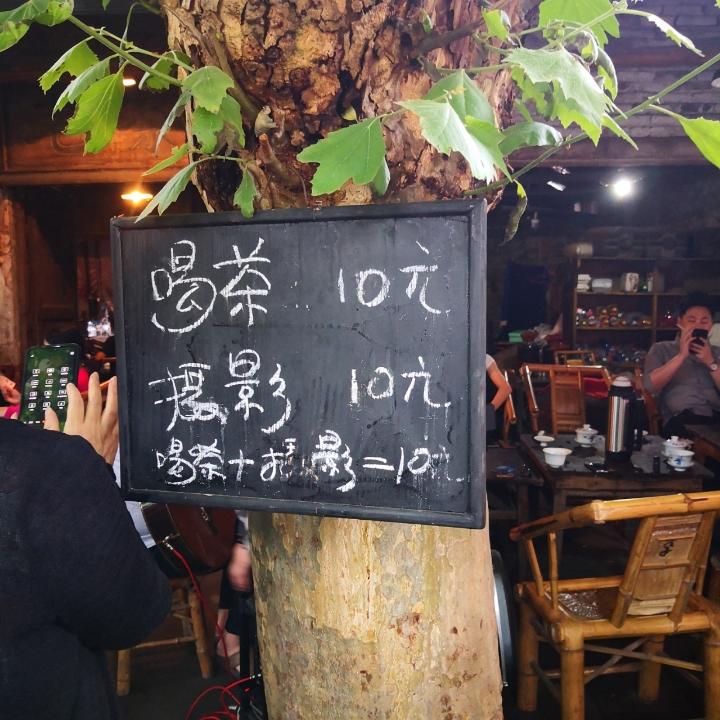 喝茶: 10元
摄影 10元
喝茶+摄影=10元